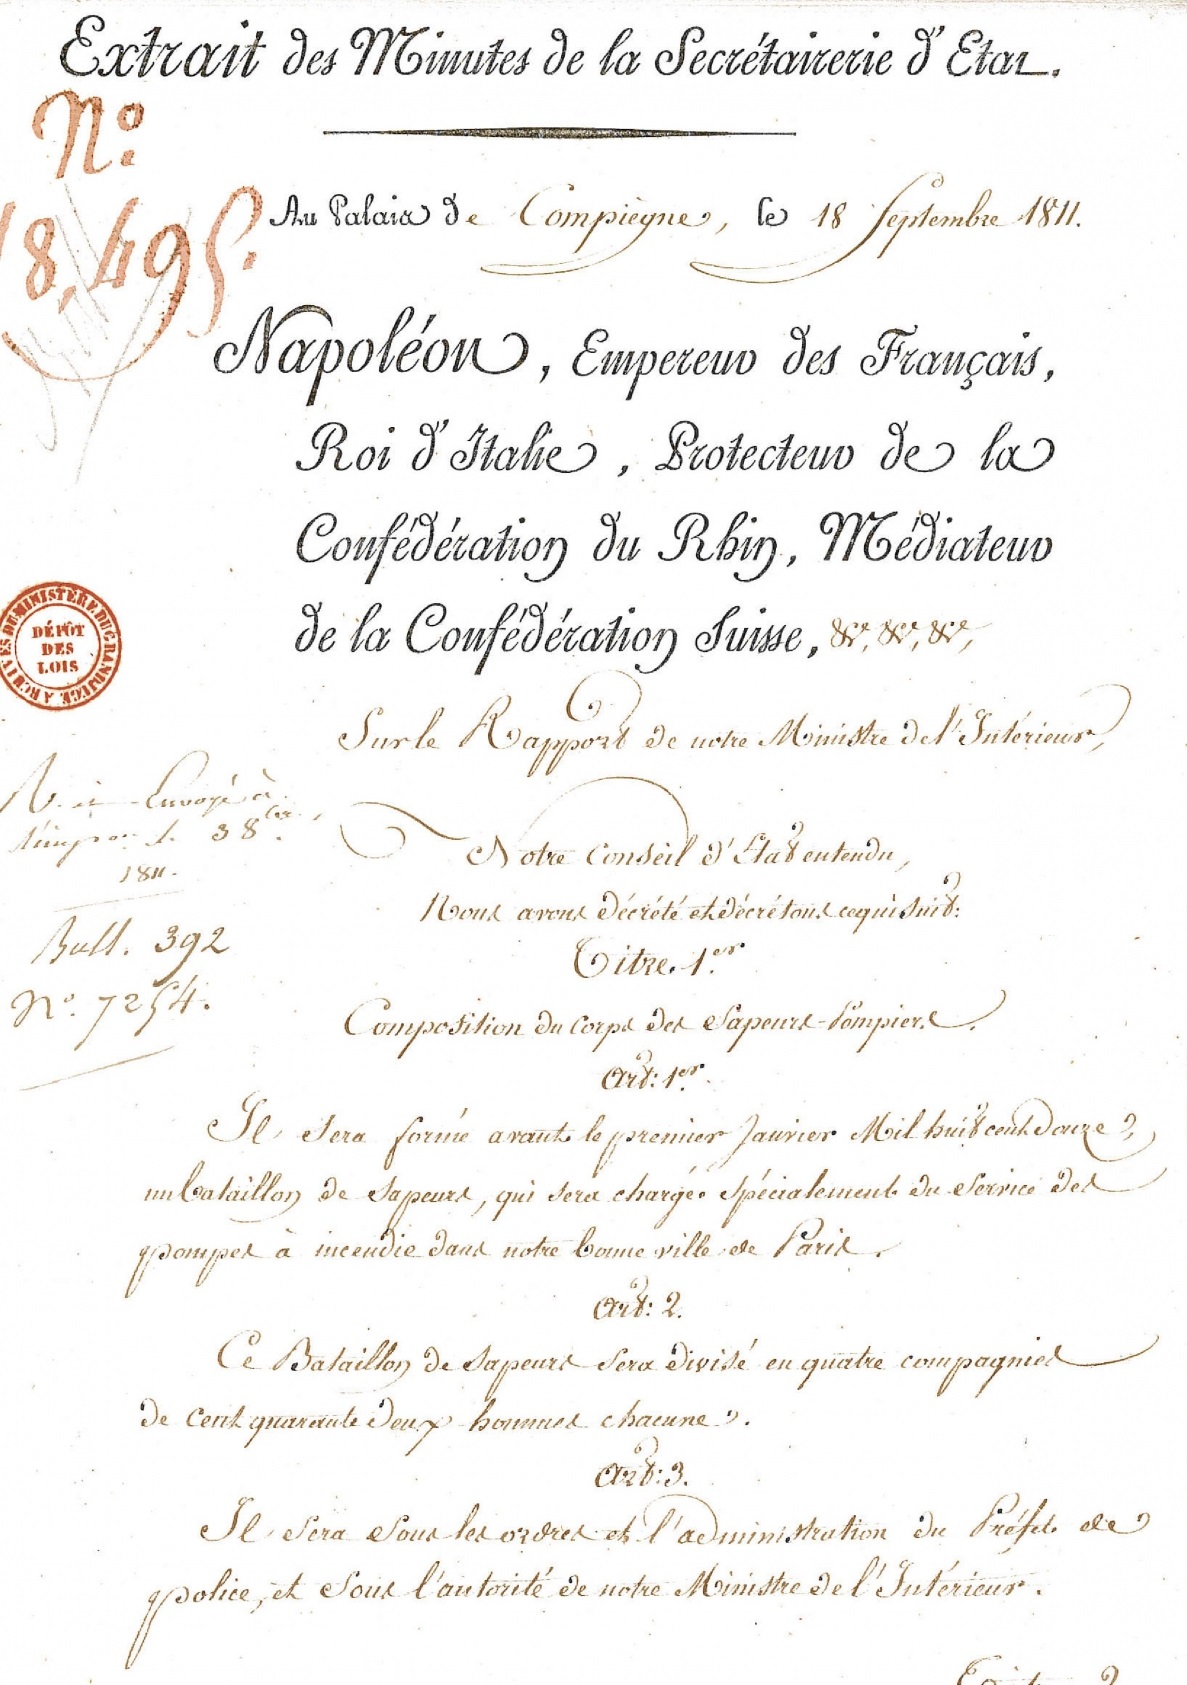 Extrait des Minutes de la Secrétairerie d'Etat.
N.o
18,495.
Au Palais de Compiègne, le 18 Septembre 1811.
Napoléon, Empereur des Français,
Roi d'Italie, Protecteur de la
Confédération du Rhin, Médiateur
de la Confédération Suisse, &c, &c, &c,
ARCHIVES DU MINISTERE DU GRAND JUGE
DÉPÔT
DES
LOIS
Sur le Rapport de notre Ministre de l'Intérieur,
Envoyé à
1811.
Bull. 392
N.o 7254.
Notre Conseil d'Etat entendu,
Nous avons décrété et décrétons ce qui suit:
Titre. 1.er
Composition du Corps des Sapeurs-Pompiers.
Art: 1.er
Il sera formé avant le premier Janvier Mil huit cent douze,
un bataillon de Sapeurs, qui sera chargé spécialement du Service des
pompes à incendie dans notre bonne ville de Paris.
Art: 2.
Ce Bataillon de Sapeurs sera divisé en quatre compagnies
de cent quarante deux hommes chacune.
Art: 3.
Il sera sous les ordres et l'administration du Préfet de
police, et sous l'autorité de notre Ministre de l'Intérieur.